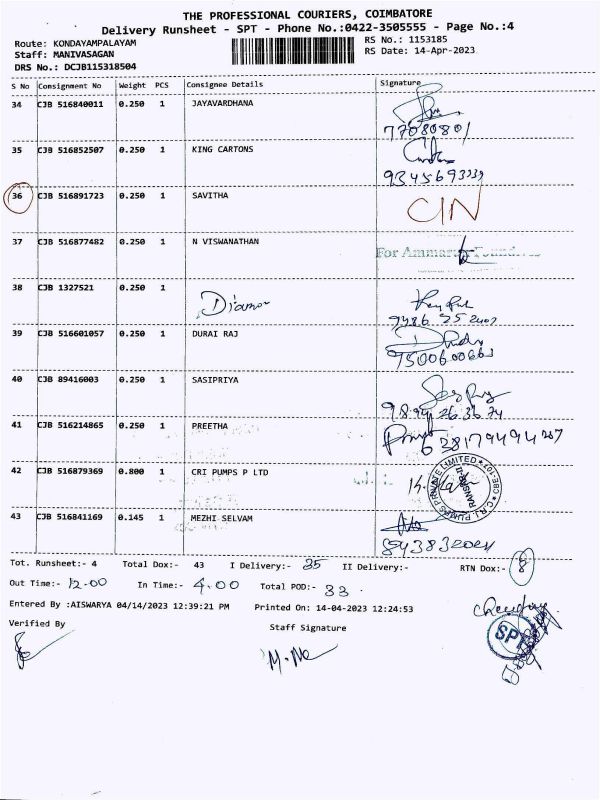 THE PROFESSIONAL COURIERS, COIMBATORE
Delivery Runsheet - SPT - Phone No.:0422-3505555 - Page No.:4
Route: KONDAYAMPALAYAM RS No.: 1153185
Staff: MANIVASAGAN RS Date: 14-Apr-2023
DRS No.: DCJB115318504
S No Consignment No Weight PCS Consignee Details Signature
34 CJB 516840011 0.250 1 JAYAVARDHANA
35 CJB 516852507 0.250 1 KING CARTONS
36 CJB 516891723 0.250 1 SAVITHA CIN
37 CJB 516877482 0.250 1 N VISWANATHAN For
38 CJB 1327521 0.250 1 Diamon
39 CJB 516601057 0.250 1 DURAI RAJ
9500600663
40 CJB 89416003 0.250 1 SASIPRIYA
9894 26 36 74
41 CJB 516214865 0.250 1 PREETHA
42 CJB 516879369 0.800 1 CRI PUMPS P LTD
C.R.I. PUMPS PRIVATE LIMITED
43 CJB 516841169 0.145 1 MEZHI SELVAM
Tot. Runsheet:- 4 Total Dox:- 43 I Delivery:- 35 II Delivery:- RTN Dox:- 8
Out Time:- 12.00 In Time:- 4.00 Total POD:- 33
Entered By :AISWARYA 04/14/2023 12:39:21 PM Printed On: 14-04-2023 12:24:53
Verified By Staff Signature
SPT